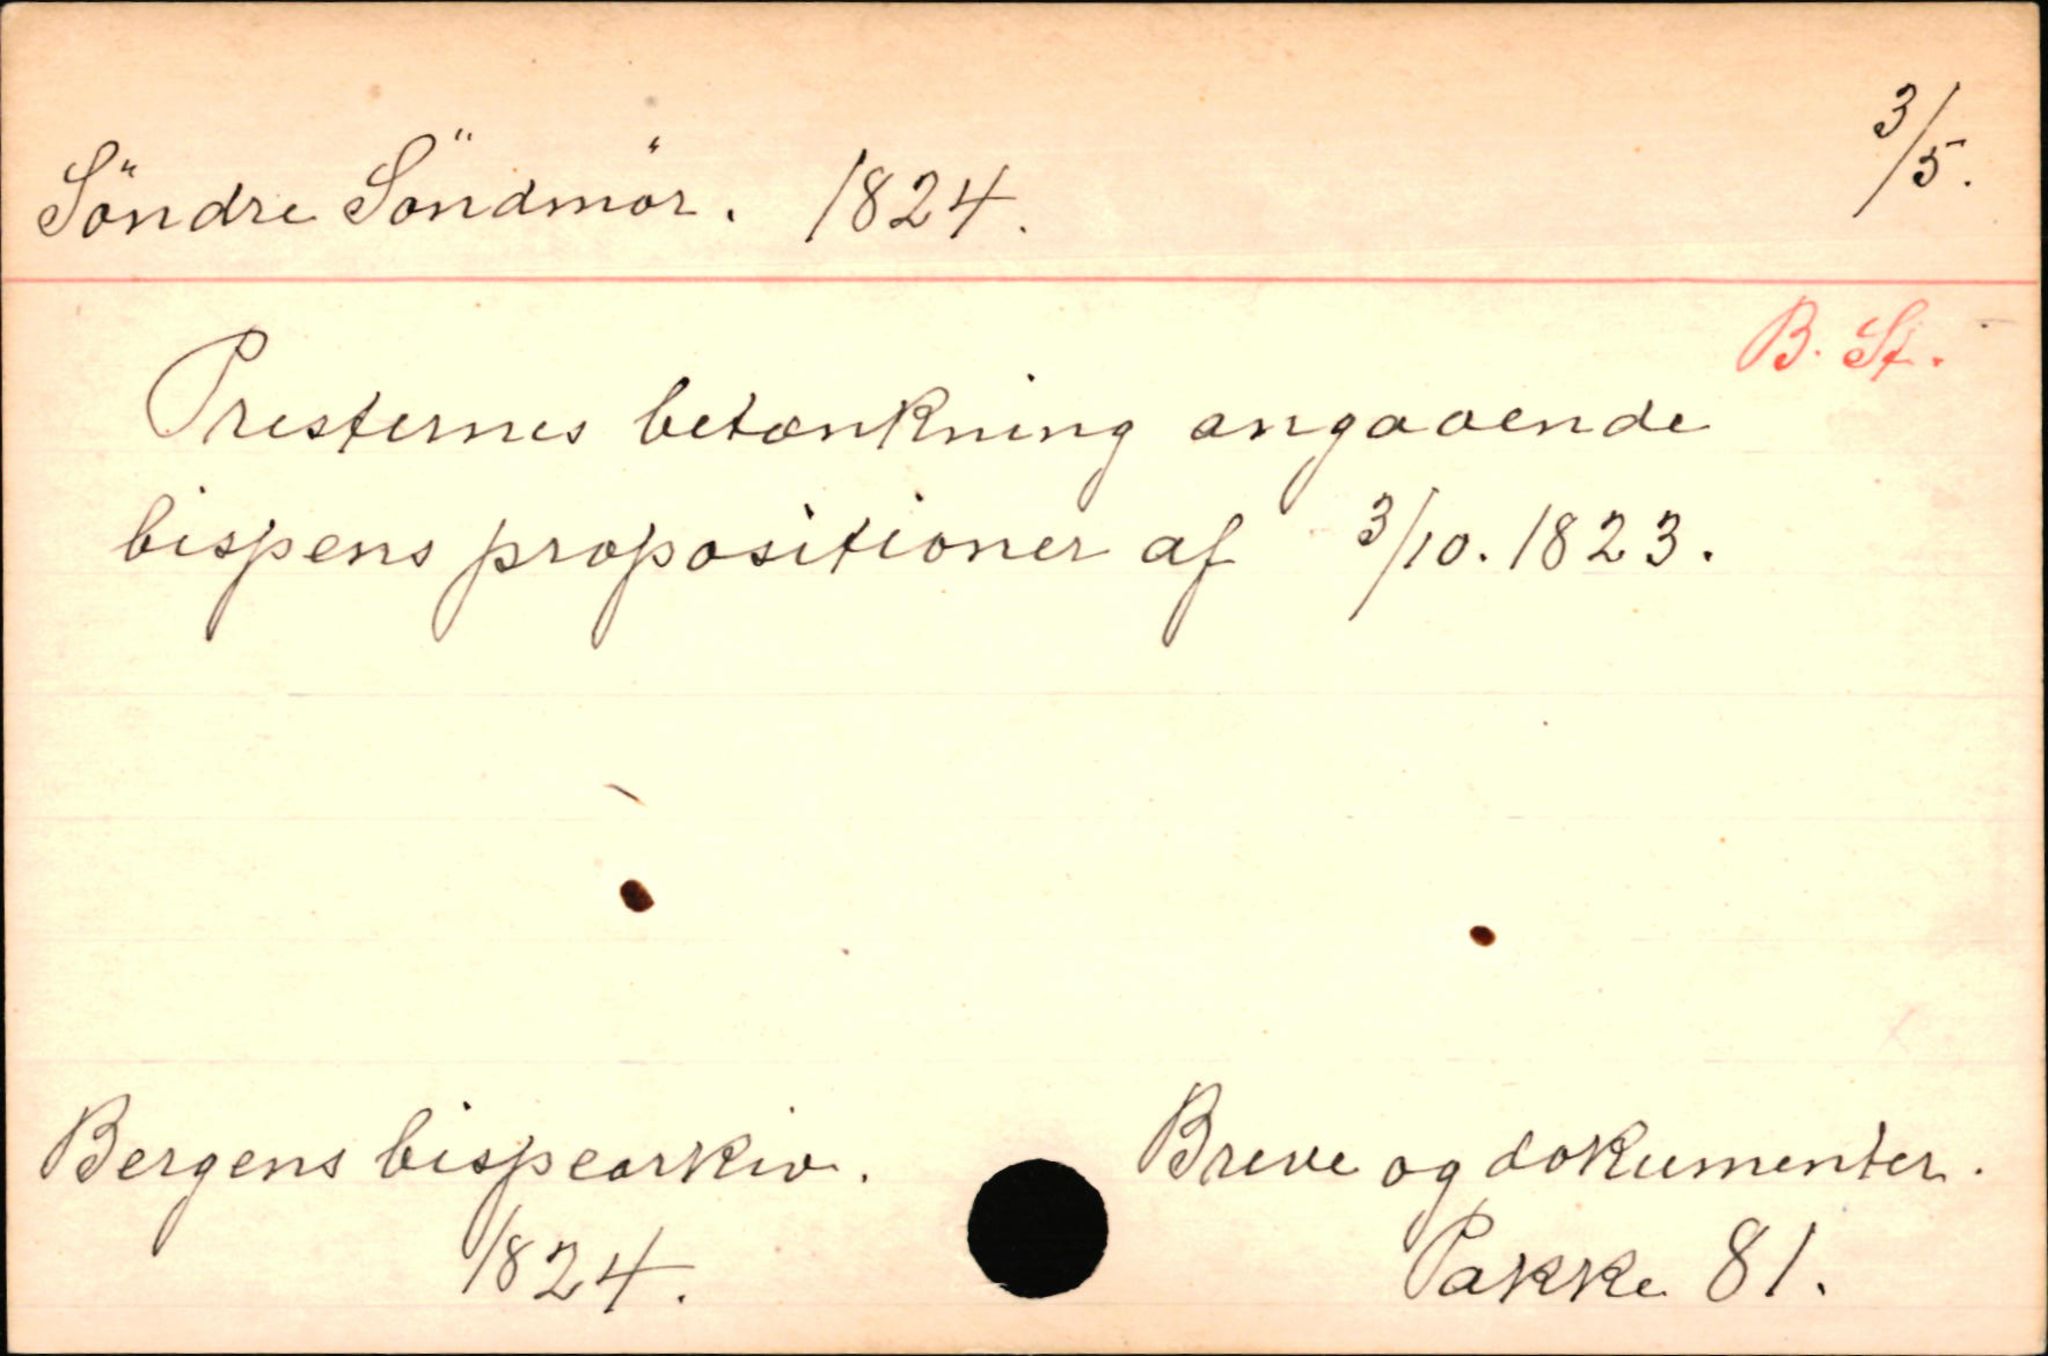 Söndre Söndmör. 1824. 3/5.
B. St.
Presternes betænkning angaaende
bispens propositioner af 3/10. 1823.
Bergens bispearkiv. Breve og dokumenter.
1824. Pakke 81.